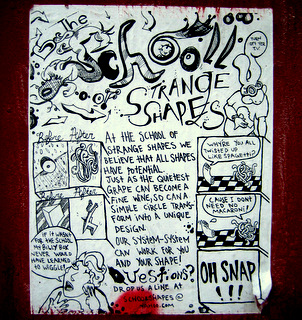 The
SCHOOll
OF
STRANGE
SHAPES
Before After
After
AT THE SCHOOL OF
STRANGE SHAPES WE
BELIEVE THAT ALL SHAPES
HAVE POTENTIAL.
JUST AS THE QUIETEST
GRAPE CAN BECOME A
FINE WINE, SO CAN A
SIMPLE CIRCLE TRANS-
FORM INTO A UNIQUE
DESIGN.
OUR SYSTEM-SYSTEM
CAN WORK FOR YOU
AND YOUR SHAPE!
QUESTIONS?
DROP US A LINE AT
SCHOOLASHAPES@
IF IT WASN'T
FOR THE SCHOOL
MY BILLY BOX
NEVER WOULD
HAVE LEARNED
TO WIGGLE!
WHY'RE YOU ALL
TWISTED UP
LIKE SPAGHETTI?
CAUSE I DONT
NEED NO
MACARONI!
OH SNAP
!!!